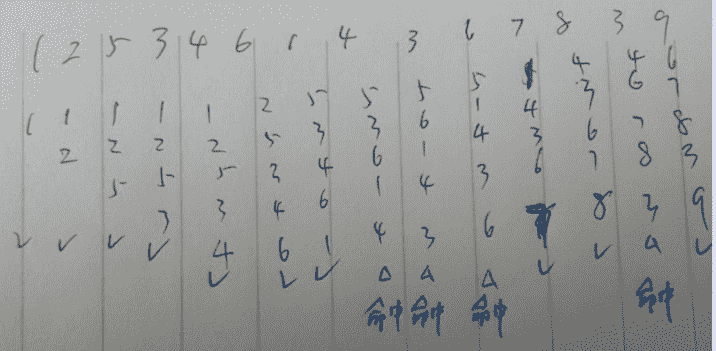 1 2 5 3 4 6 1 4 3 6 7 8 3 9
1 1 1 1 1 2 5 5 5 5 1 4 4 6
2 2 2 2 5 3 3 6 1 4 3 6 7
5 5 5 3 4 6 1 4 3 6 7 8
3 3 4 6 1 4 3 6 7 8 3
4 6 1 4 3 6 7 8 3 9
✓ ✓ ✓ ✓ ✓ ✓ ✓ △ △ △ ✓ ✓ △ ✓
命中 命中 命中 命中